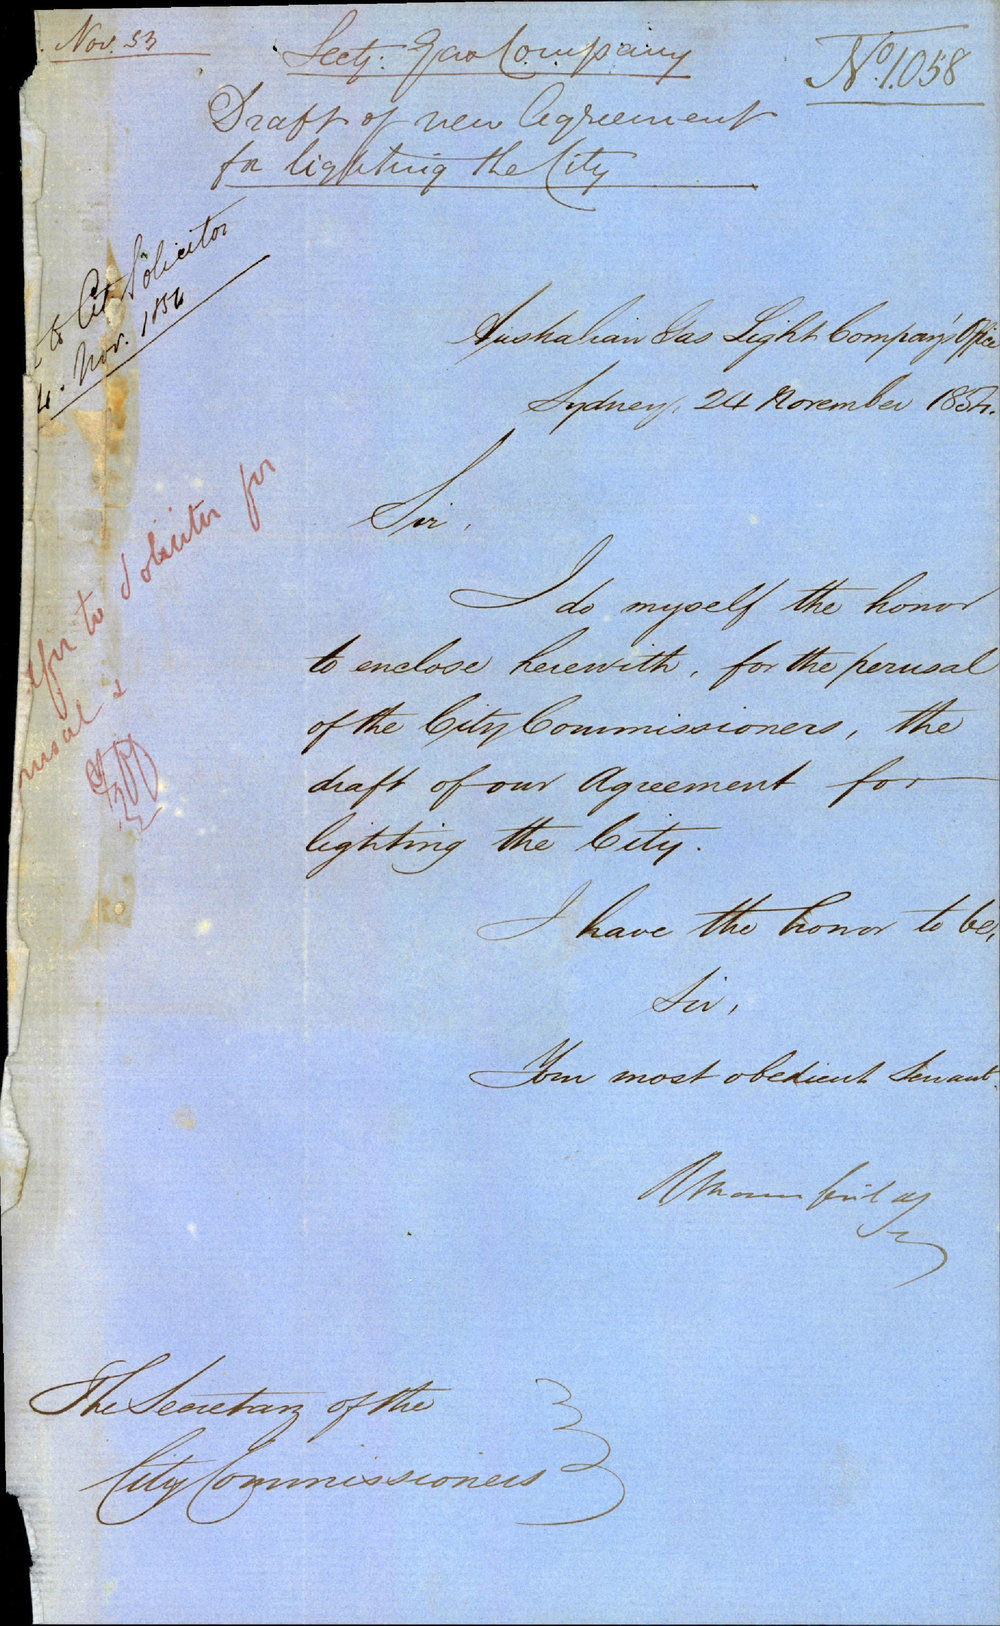 Nov. 53
Secty. Gas Company
No. 1058
Draft of new Agreement
for lighting the City
to City Solicitor
Nov. 1854
Australian Gas Light Company's Office
Sydney, 24 November 1854.
Sir,
I do myself the honor
to enclose herewith, for the perusal
of the City Commissioners, the
draft of our Agreement for
lighting the City.
I have the honor to be,
Sir,
Your most obedient Servant.
to Solicitor for
The Secretary of the
City Commissioners